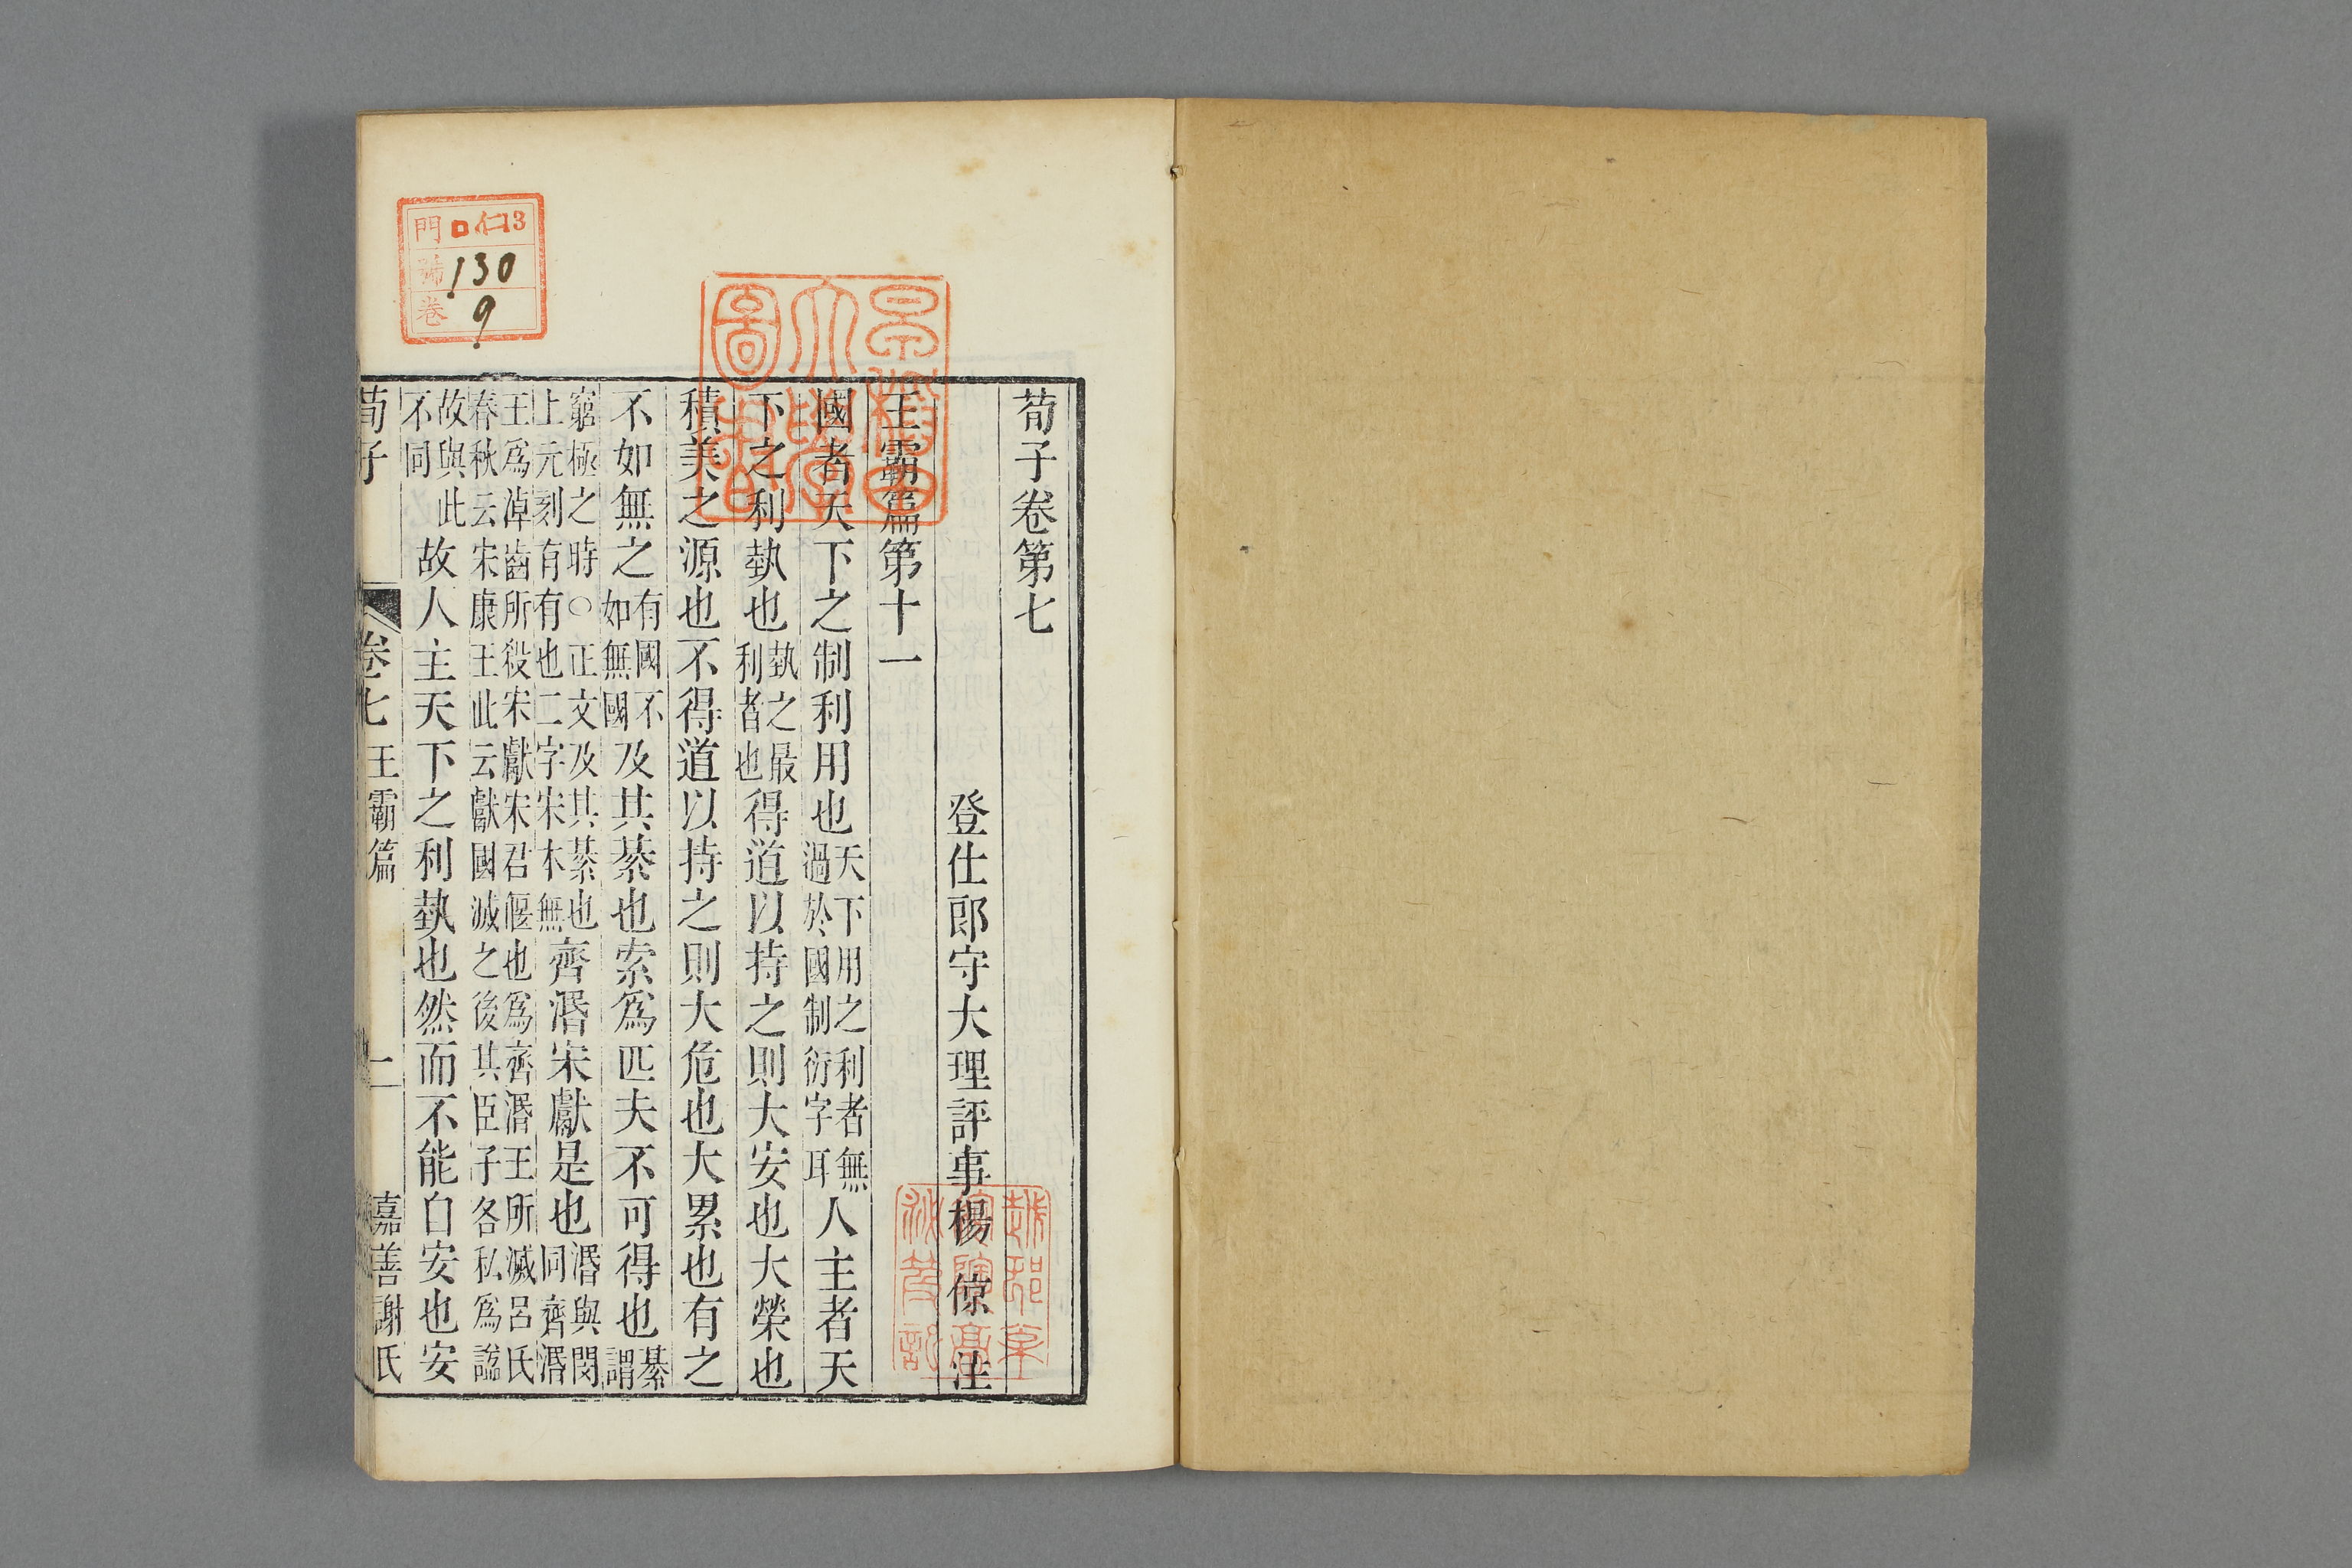 荀子卷第七
登仕郎守大理評事楊倞注
王霸篇第十一
國者天下之制利用也天下用之利者無過於國制衍字耳人主者天
下之利埶也埶之最利者也得道以持之則大安也大榮也
積美之源也不得道以持之則大危也大累也有之
不如無之有國不如無國及其綦也索爲匹夫不可得也綦謂
窮極之時○正文及其綦也上元刻有有也二字宋本無齊湣宋獻是也湣與閔同齊湣
王爲淖齒所殺宋獻宋君偃也爲齊湣王所滅呂氏春秋云宋康王此云獻國滅之後其臣子各私爲諡
故與此不同故人主天下之利埶也然而不能自安也安
荀子 卷七 王霸篇 一 嘉善謝氏
門 ロ仁3
號 130
卷 9